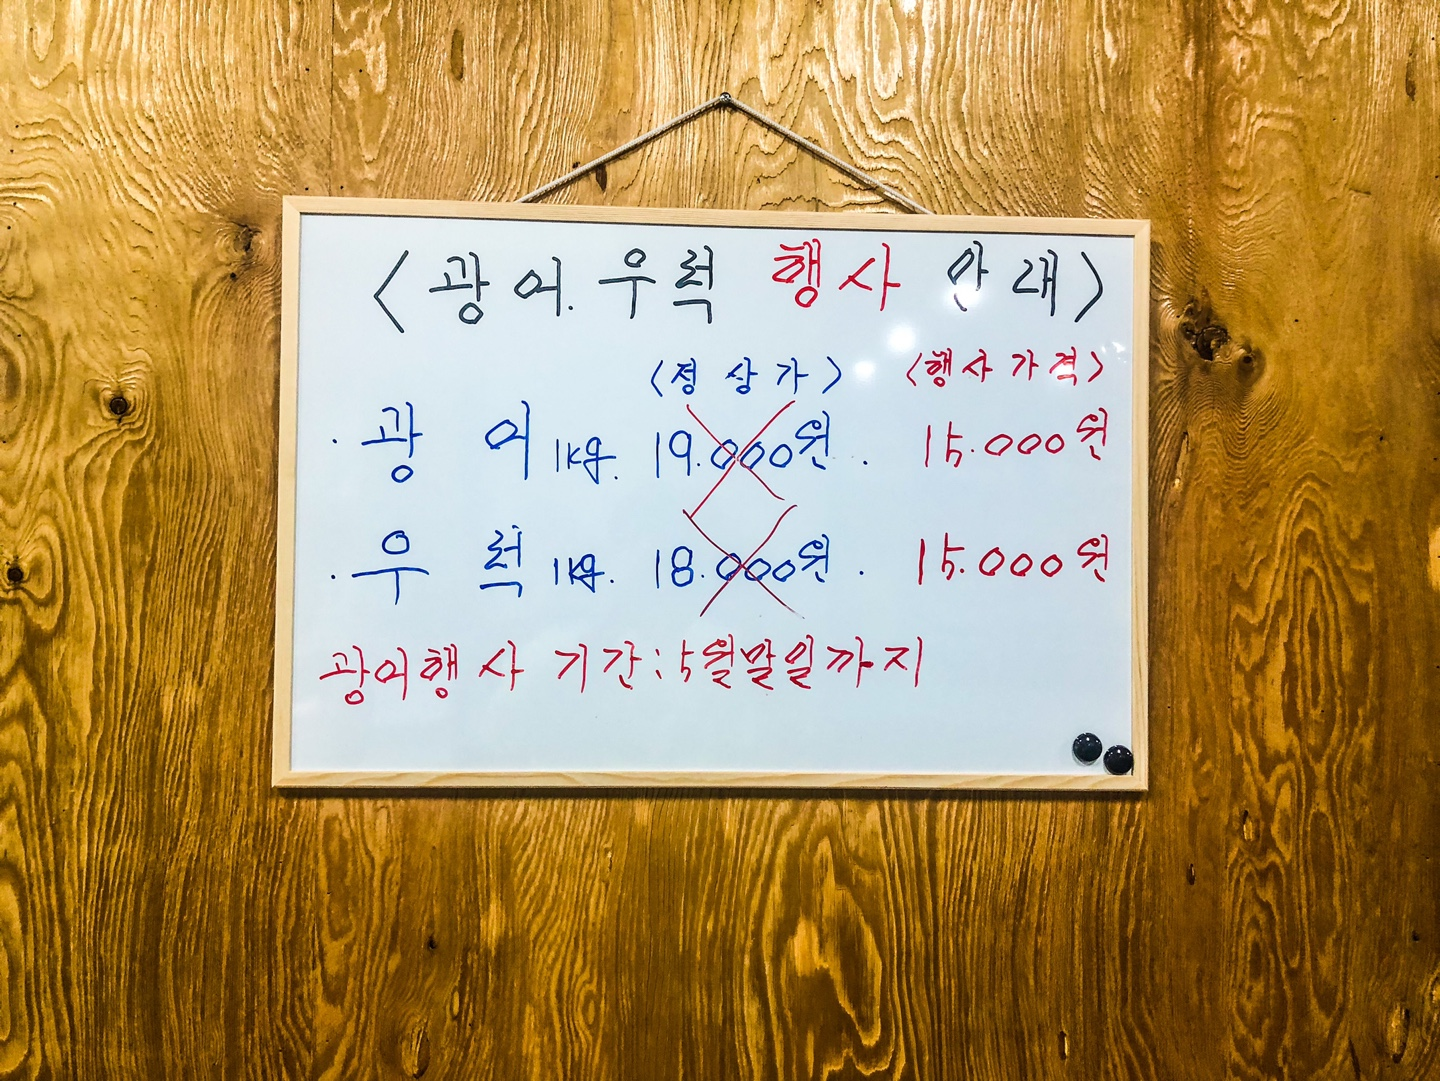 <광어.우럭 행사 안내>
<정상가> <행사가격>
·광 어 1kg. 19.000원. 15.000원
·우 럭 1kg. 18.000원. 15.000원
광어행사 기간:5월말일까지